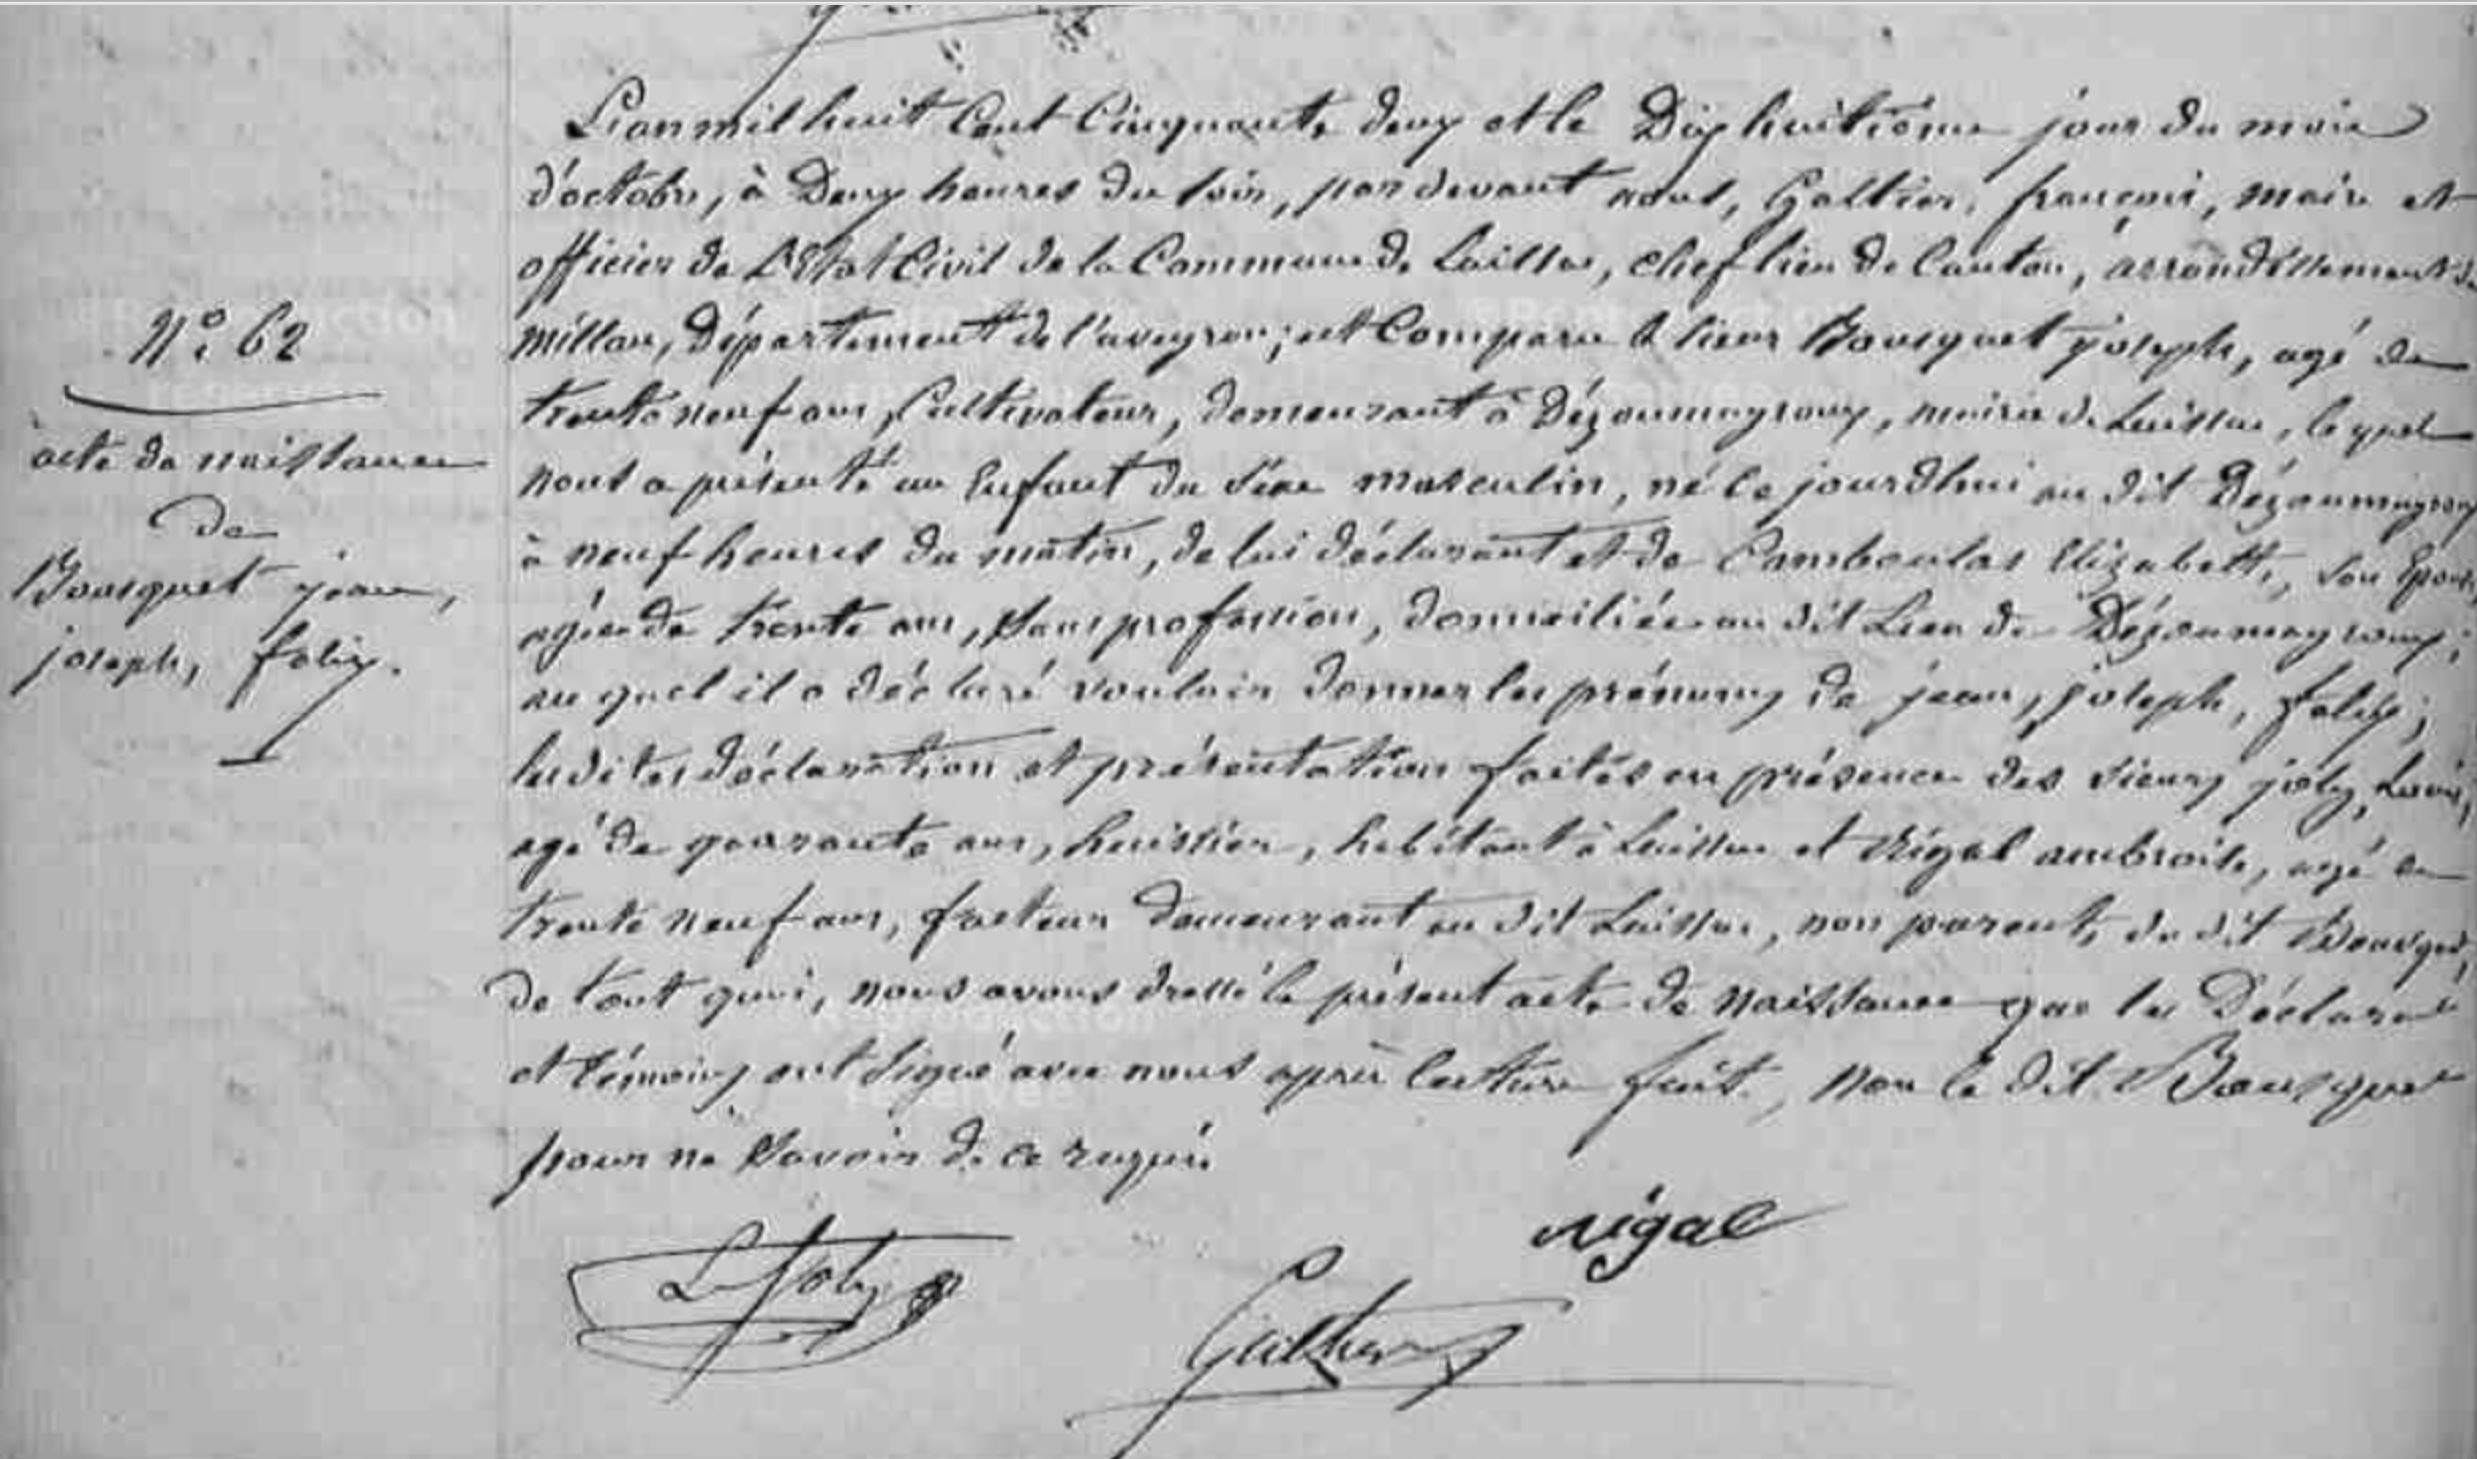 N° 62
acte de naissance
de
Bousquet jean,
joseph, felix.
L'an mil huit Cent Cinquante deux et le Dix huitième jour du mois
d'octobre, à Deux heures du soir, par devant nous, Galtier, françois, maire et
officier de L'Etat Civil de la Commune de Laissac, chef lieu de Canton, arrondissement de
Millau, Département de l'aveyron; est Comparu le sieur Bousquet joseph, agé de
trente neuf ans, Cultivateur, demeurant à Dézoumayroux, mairie de Laissac, lequel
nous a présenté un Enfant du séxe masculin, né ce jourd'hui au dit Dézoumayroux
à neuf heures du matin, de lui déclarant et de Camboulas Elizabeth, son Epouse,
agée de trente ans, sans profession, domiciliée au dit Lieu de Dézoumayroux;
au quel il a déclaré vouloir donner les prénoms de jean, joseph, felix;
lesdites déclaration et présentation faites en présence des sieurs joly, Louis,
agé de quarante ans, huissier, habitant à Laissac et Rigal ambroise, agé de
trente neuf ans, facteur demeurant au dit Laissac, non parents du dit Bousquet,
de tout quoi, nous avons dressé le présent acte de naissance que les Déclarant
et témoins ont signé avec nous après lecture fait, non le dit Bousquet
pour ne savoir de ce requis
rigal
L. Joly
Galtier